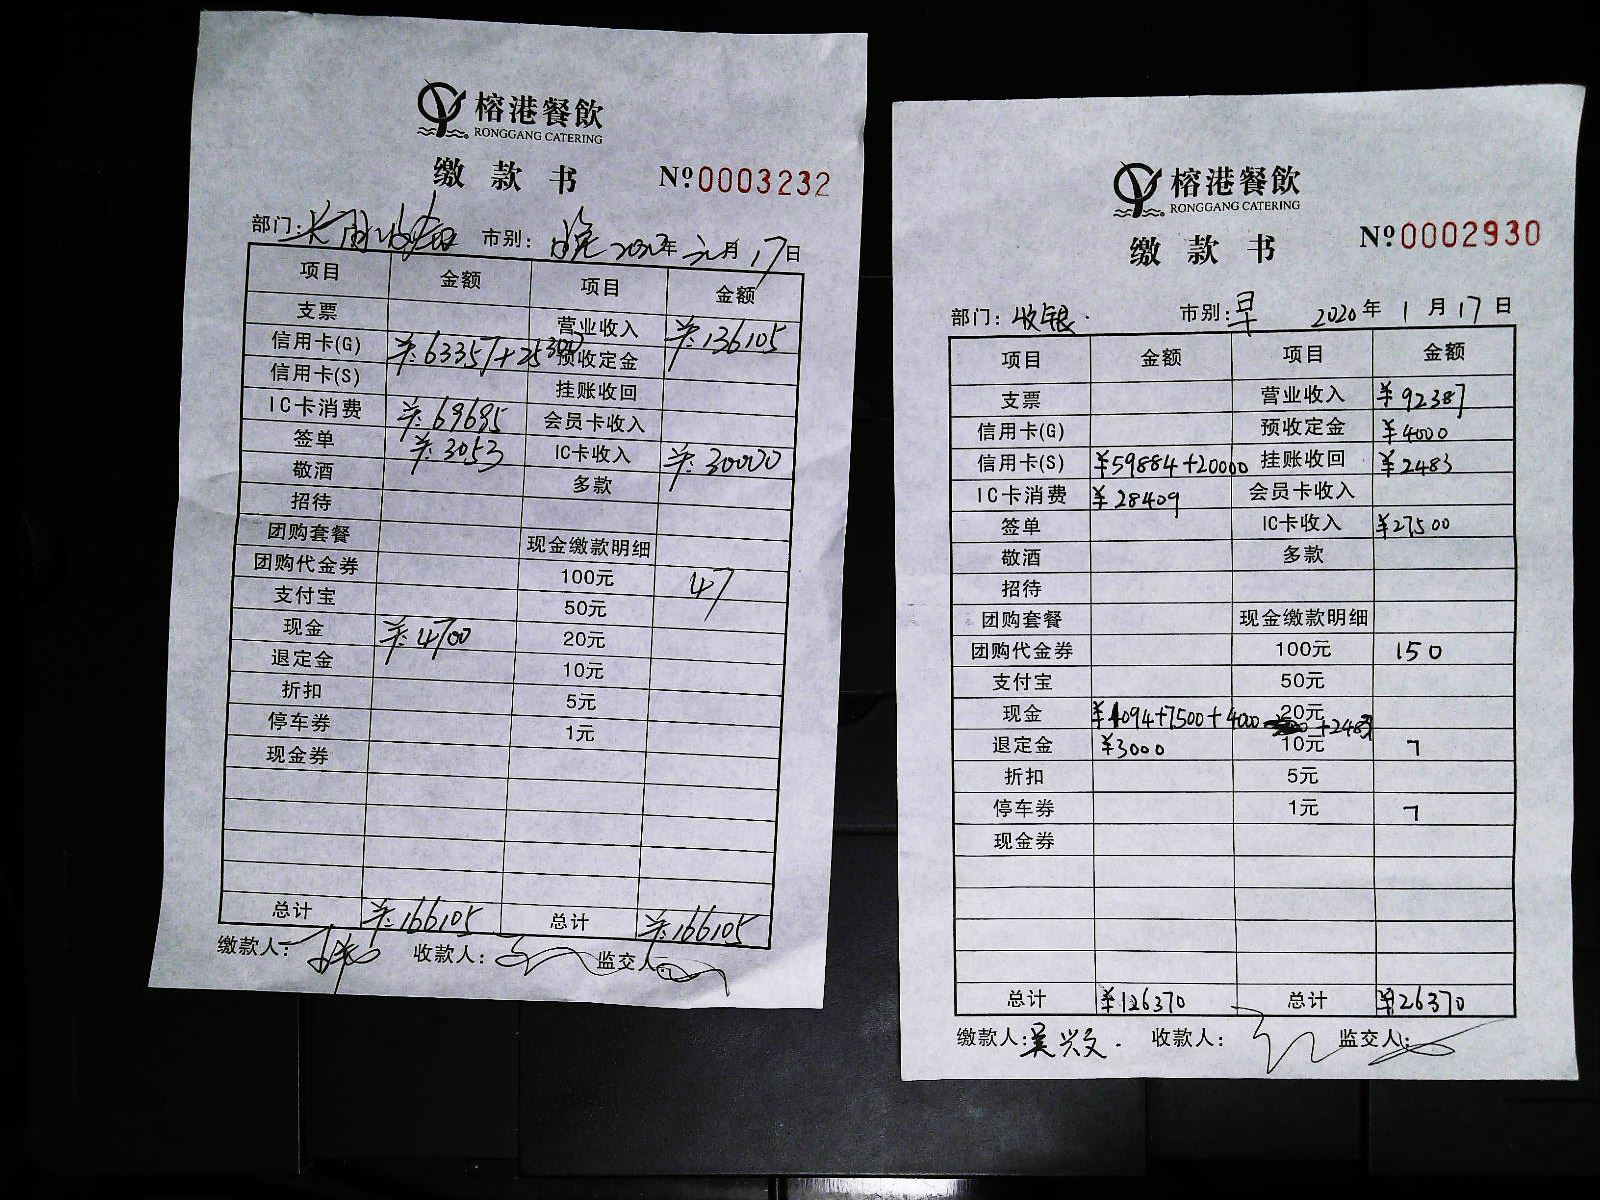 榕港餐飲
RONGGANG CATERING
缴款书 Nº0003232
部门: 市别: 晚 2020年 元月 17日
项目 金额 项目 金额
支票 营业收入 ¥:136105
信用卡(G) ¥:63357+25300 预收定金
信用卡(S) 挂账收回
IC卡消费 ¥:69695 会员卡收入
签单 ¥:3053 IC卡收入 ¥:30000
敬酒 多款
招待
团购套餐 现金缴款明细
团购代金券 100元 47
支付宝 50元
现金 ¥:4700 20元
退定金 10元
折扣 5元
停车券 1元
现金券
总计 ¥:166105 总计 ¥:166105
缴款人: 收款人: 监交人:
榕港餐飲
RONGGANG CATERING
缴款书 Nº0002930
部门: 收银. 市别: 早 2020年 1月17日
项目 金额 项目 金额
支票 营业收入 ¥92387
信用卡(G) 预收定金 ¥4000
信用卡(S) ¥59884+20000 挂账收回 ¥2483
IC卡消费 ¥28409 会员卡收入
签单 IC卡收入 ¥27500
敬酒 多款
招待
团购套餐 现金缴款明细
团购代金券 100元 150
支付宝 50元
现金 ¥1094+7500+4000 +2483 20元
退定金 ¥3000 10元 7
折扣 5元
停车券 1元 7
现金券
总计 ¥126370 总计 ¥126370
缴款人: 吴兴文. 收款人: 监交人: